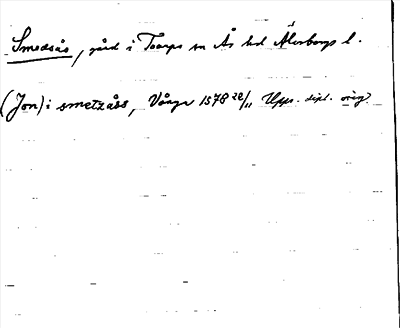 Smedsås, gård i Toarps sn Ås hd Älvsborgs l.
(Jon) i smetzååss, Vånga 1578 22/11 Upps. dipl. orig.